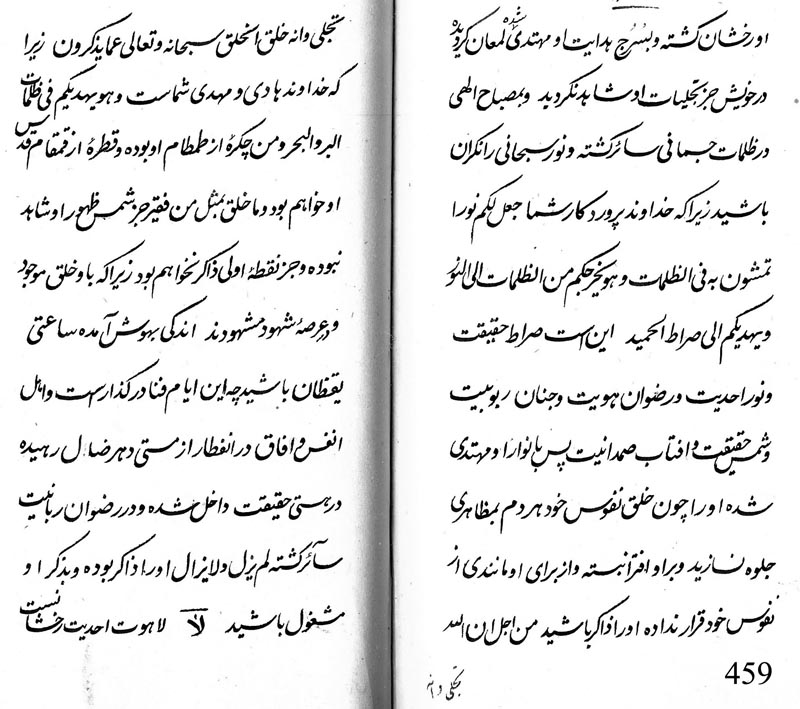 اورخشان کشته و بسرج هدایت او مهتدی شده لمعان کردیده
درخویش جز تجلیات او شاهد نکردید وبمصباح الهی
درظلمات جسمانی سائرکشته ونور سبحانی رانکران
باشید زیراکه خداوند پروردکارشما جعل لکم نورا
تمشون به فی الظلمات وهویخرجکم من الظلمات الی النور
ویهدیکم الی صراط الحمید این است صراط حقیقت
ونور احدیت ورضوان هویت وجنان ربوبیت
وشمس حقیقت وافتاب صمدانیت پس بانوار او مهتدی
شده اورا چون خلق نفوس خود هردم بمظاهری
جلوه نسازید وبراو افترا نبسته واز برای او مانندی از
نفوس خود قرار نداده اورا ذاکر باشید من اجل ان الله
تجلی وانه
459
تجلی وانه خلق الخلق سبحانه وتعالی عما یذکرون زیرا
که خداوند هادی ومهدی شماست وهو یهدیکم فی ظلمات
البر والبحر ومن چکره از طمطام او بوده وقطره از قمقام قدس
او خواهم بود وما خلق بمثل من فقیر جز شمس ظهور او شاهد
نبوده وجز نقطه اولی ذاکر نخواهم بود زیراکه باو خلق موجود
ودرعرصه شهود مشهودند اندکی بهوش آمده ساعتی
یقظان باشید چه این ایام فنا درکذاراست واهل
انفس وافاق در انفطار از مستی دهر ضال رهیده
درهستی حقیقت داخل شده ودررضوان ربانیت
سائرکشته لم یزل ولایزال اورا ذاکر بوده وبذکر او
مشغول باشید لا لاهوت احدیت رخشانست